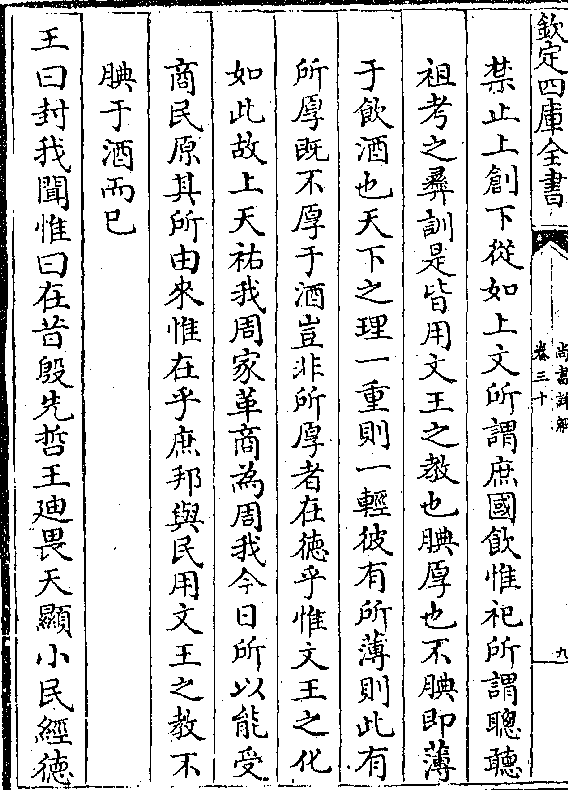 欽定四庫全書
尚書詳解
卷三十
九
禁止上創下從如上文所謂庶國飲惟祀所謂聰聽
祖考之彞訓是皆用文王之教也腆厚也不腆即薄
于飲酒也天下之理一重則一輕彼有所薄則此有
所厚既不厚于酒豈非所厚者在徳乎惟文王之化
如此故上天祐我周家革商為周我今日所以能受
商民原其所由來惟在乎庶邦與民用文王之教不
腆于酒而已
王曰封我聞惟曰在昔殷先哲王廸畏天顯小民經徳